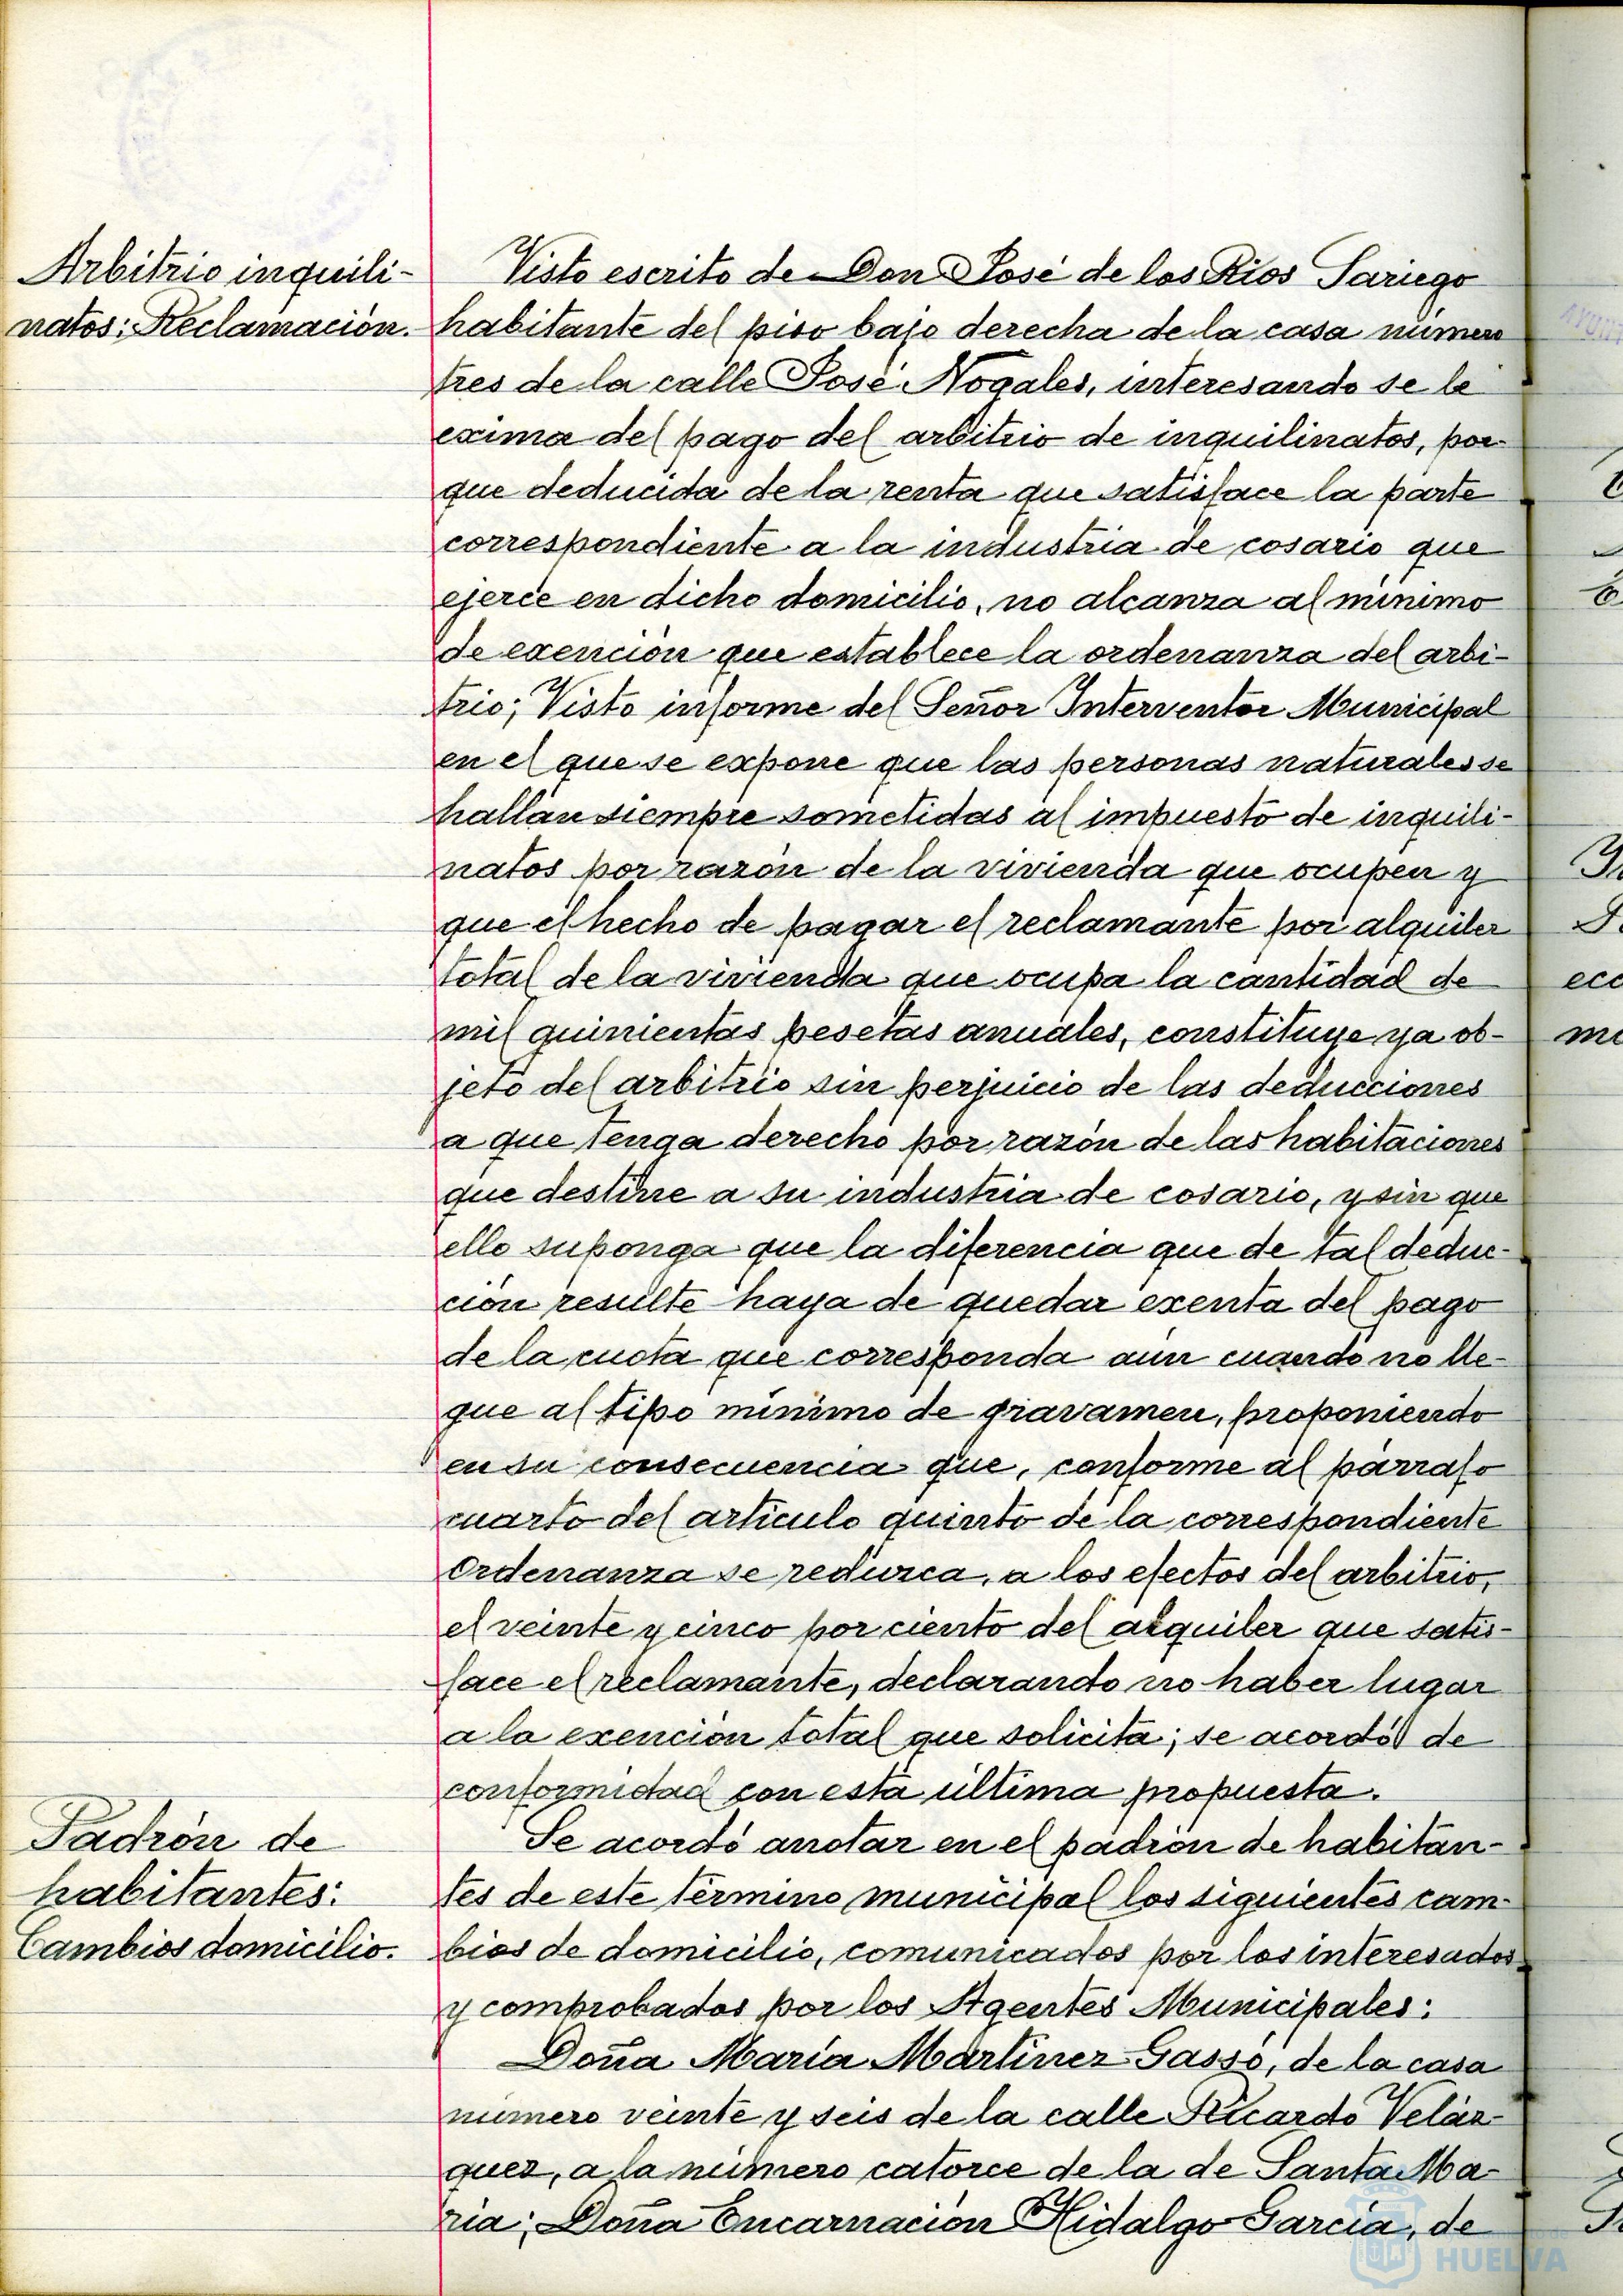 Arbitrio inquili-
natos: Reclamación.
Visto escrito de Don José de los Rios Sariego
habitante del piso bajo derecha de la casa número
tres de la calle José Nogales, interesando se le
exima del pago del arbitrio de inquilinatos, por-
que deducida de la renta que satisface la parte
correspondiente a la industria de cosario que
ejerce en dicho domicilio, no alcanza al mínimo
de exención que establece la ordenanza del arbi-
trio; Visto informe del Señor Interventor Municipal
en el que se expone que las personas naturales se
hallan siempre sometidas al impuesto de inquili-
natos por razón de la vivienda que ocupen y
que el hecho de pagar el reclamante por alquiler
total de la vivienda que ocupa la cantidad de
mil quinientas pesetas anuales, constituye ya ob-
jeto del arbitrio sin perjuicio de las deducciones
a que tenga derecho por razón de las habitaciones
que destine a su industria de cosario, y sin que
ello suponga que la diferencia que de tal deduc-
ción resulte haya de quedar exenta del pago
de la cuota que corresponda aun cuando no lle-
gue al tipo mínimo de gravamen, proponiendo
en su consecuencia que, conforme al párrafo
cuarto del artículo quinto de la correspondiente
Ordenanza se reduzca, a los efectos del arbitrio,
el veinte y cinco por ciento del alquiler que satis-
face el reclamante, declarando no haber lugar
a la exención total que solicita; se acordó de
conformidad con esta última propuesta.
Padrón de
habitantes:
Cambios domicilio.
Se acordó anotar en el padrón de habitan-
tes de este término municipal los siguientes cam-
bios de domicilio, comunicados por los interesados
y comprobados por los Agentes Municipales:
Doña María Martínez Gassó, de la casa
número veinte y seis de la calle Ricardo Veláz-
quez, a la número catorce de la de Santa Ma-
ría; Doña Encarnación Hidalgo García, de
HUELVA